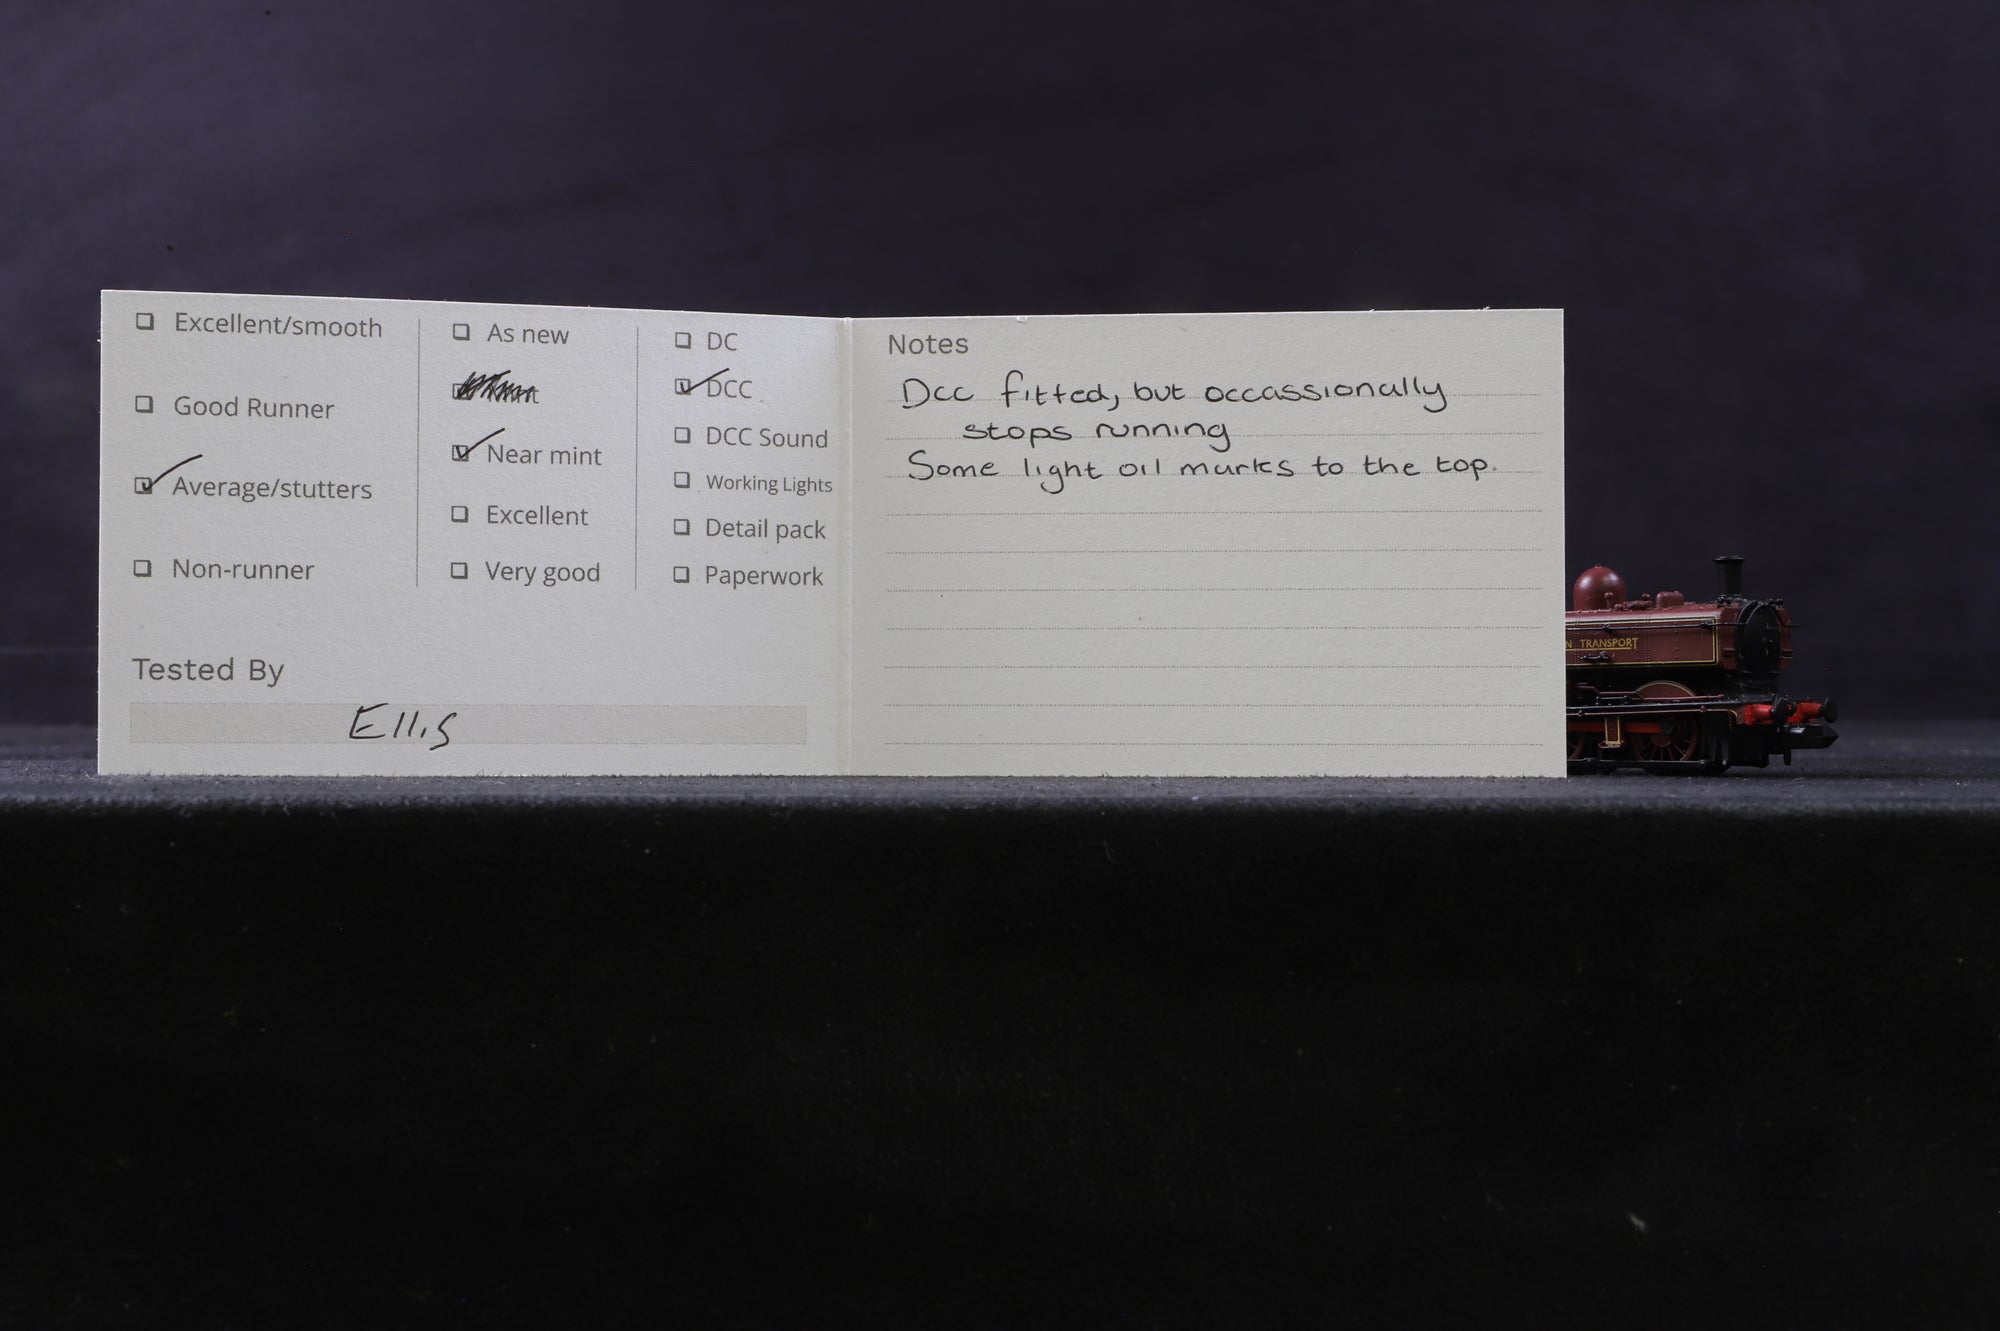 Excellent/smooth
Good Runner
Average/stutters
Non-runner
As new
Near mint
Excellent
Very good
DC
DCC
DCC Sound
Working Lights
Detail pack
Paperwork
Tested By
Ellis
Notes
Dcc fitted, but occassionally
stops running
Some light oil marks to the top.
N TRANSPORT